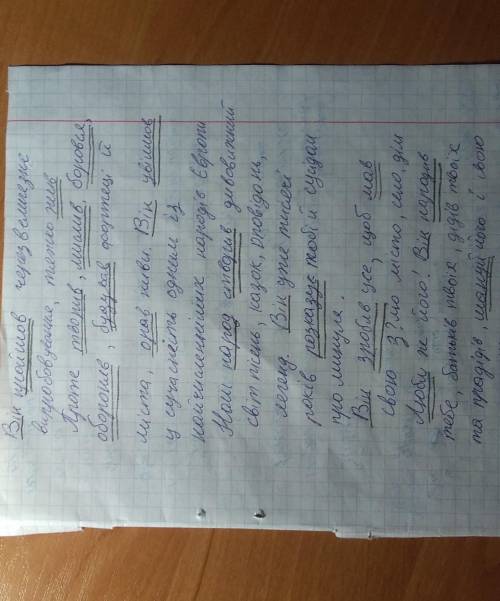 Він пройшов через величезні
випробовування, тяжко жив
Проте творив, мислив, боровся,
оборонив, будував фортеці й
міста, орав ниви. Він увійшов
у сучасність одним із
найчисленніших народів Європи
Наш народ створив дивовижний
світ пісень, казок, оповідань,
легенд. Він уже тисячі
років розказує тобі й сусідам
про минуле.
Він зробив усе, щоб мав
свою З?мо місто, село, дім
Люби ж його! Він народив
тебе, батьків твоїх, дідів твоїх
та прадідів, шануй його і свою